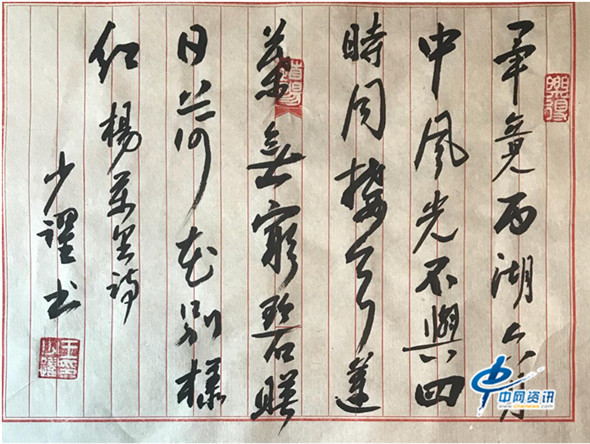 畢竟西湖六月
中風光不與四
時同接天蓮
葉無窮碧映
日荷花别樣
紅楊萬里詩
少躍书
中网资讯